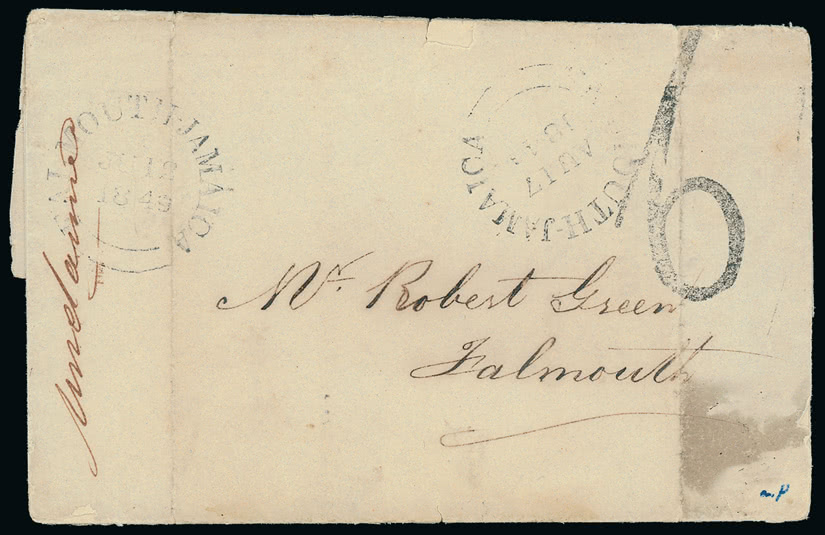 FALMOUTH-JAMAICA
12
1843
OUTH-JAMAICA
AU17
6
Mr. Robert Green
Falmouth
Unclaimed